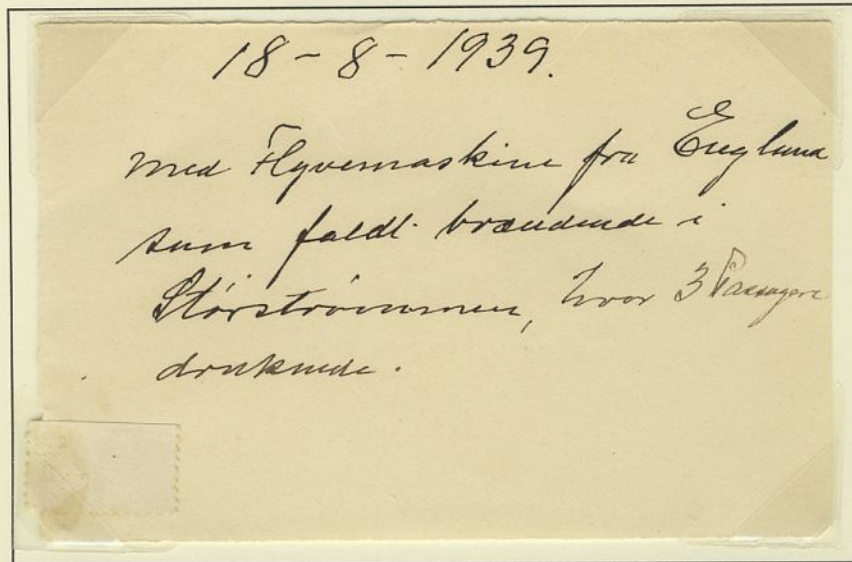 18-8-1939.
med Flyvemaskine fra England
som faldt brændende i
Storstrømmen, hvor 3 Passagere
druknede.